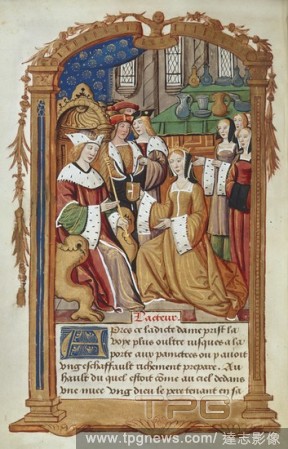 Lacteur.
Apres ce ladicte dame prist la
voye plus oultre iusques a la
porte aux painctres ou y avoit
ung eschaffault richement prepare. Au
hault du quel estoit come au ciel dedans
une nuee ung dieu le pere tenant en sa
TPG
www.tpgnews.com / 達志影像